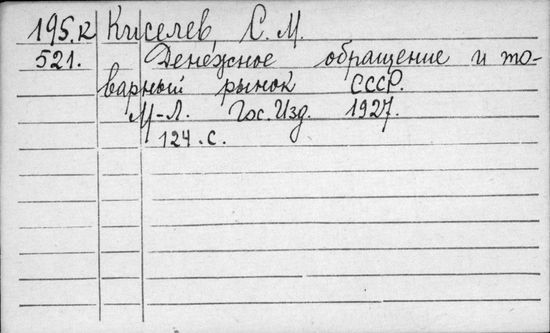 195.к Киселев С. М.
521. Денежное обращение и то-
варный рынок СССР.
М-Л. Гос. Изд. 1927.
124. с.